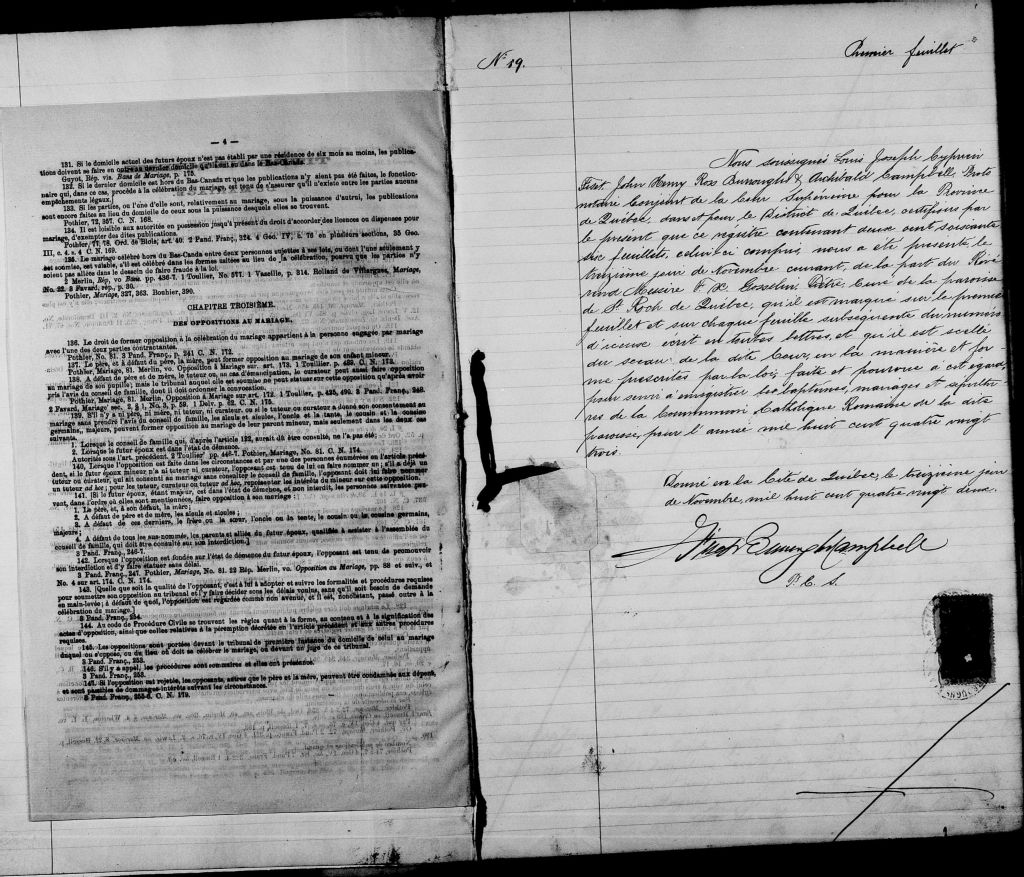 — 4 —
131. Si le domicile actuel des futurs époux n'est pas établi par une résidence de six mois au moins, les publica-
tions doivent se faire en outre au dernier domicile qu'ils ont eu dans le Bas-Canada.
Guyot, Rép. vis. Bans de Mariage, p. 175.
132. Si le dernier domicile est hors du Bas-Canada et que les publications n'y aient pas été faites, le fonction-
naire qui, dans ce cas, procède à la célébration du mariage, est tenu de s'assurer qu'il n'existe entre les parties aucuns
empêchements légaux.
133. Si les parties, ou l'une d'elle sont, relativement au mariage, sous la puissance d'autrui, les publications
sont encore faites au lieu du domicile de ceux sous la puissance desquels elles se trouvent.
Pothier, 72, 357. C. N. 168.
134. Il est loisible aux autorités en possession jusqu'à présent du droit d'accorder des licences ou dispenses pour
mariage, d'exempter des dites publications.
Pothier, 77, 78. Ord. de Blois, art. 40. 2 Pand. Franç., 324. 4 Geo. IV, c. 75 en plusieurs sections, 35 Geo.
III, c. 4, s. 4 C. N. 169.
135. Le mariage célébré hors du Bas-Canada entre deux personnes sujettes à ses lois, ou dont l'une seulement y
est soumise, est valable, s'il est célébré dans les formes usitées au lieu de la célébration, pourvu que les parties n'y
soient pas allées dans le dessein de faire fraude à la loi.
2 Merlin, Rép, vo Bans. pp. 436-7. 1 Toullier, No. 577. 1 Vazeille, p. 314. Rolland de Villargues, Mariage,
No. 22. 3 Favard, rép., p. 30.
Pothier, Mariage, 327, 363. Bouhier, 390.
CHAPITRE TROISIÈME.
DES OPPOSITIONS AU MARIAGE.
136. Le droit de former opposition à la célébration du mariage appartient à la personne engagée par mariage
avec l'une des deux parties contractantes.
Pothier, No. 81. 3 Pand. Franç., p. 241 C. N. 172.
137. Le père, et, à défaut du père, la mère, peut former opposition au mariage de son enfant mineur.
Pothier, Mariage, 81. Merlin, vo. Opposition à Mariage sur. art. 173. 1 Toullier, p. 489. C. N. 173.
138. A défaut de père et de mère, le tuteur, ou, au cas d'émancipation, le curateur, peut aussi faire opposition
au mariage de son pupille; mais le tribunal auquel elle est soumise ne peut statuer sur cette opposition qu'après avoir
pris l'avis du conseil de famille, dont il doit ordonner la convocation.
Pothier, Mariage, 81. Merlin, Opposition à Mariage sur art. 172. 1 Toullier, p. 435, 490. 3 Pand. Franç., 248.
2 Favard, Mariage, sec. 2, § 1, No. 3, p. 59. 1 Delv. p. 22. C. N. 175.
139. S'il n'y a ni père, ni mère, ni tuteur, ni curateur, ou si le tuteur ou curateur a donné son consentement au
mariage sans prendre l'avis du conseil de famille, les aïeuls et aïeules, l'oncle et la tante, le cousin et la cousine
germains, majeurs, peuvent former opposition au mariage de leur parent mineur, mais seulement dans les deux cas
suivants.
1. Lorsque le conseil de famille qui, d'après l'article 122, aurait dû être consulté, ne l'a pas été;
2. Lorsque le futur époux est dans l'état de démence.
Autorités sous l'art. précédent. 2 Toullier pp. 446-7. Pothier, Mariage, No. 81. C. N. 174.
140. Lorsque l'opposition est faite dans les circonstances et par une des personnes énumérées en l'article précé-
dent, si le futur époux mineur n'a ni tuteur ni curateur, l'opposant est tenu de lui en faire nommer un; s'il a déjà un
tuteur ou curateur, qui ait consenti au mariage sans consulter le conseil de famille, l'opposant doit lui faire nommer
un tuteur ad hoc; pour le tuteur, curateur ou tuteur ad hoc, représenter les intérêts du mineur sur cette opposition.
141. [Si le futur époux, étant majeur, est dans l'état de démence, et non interdit, les personnes suivantes peu-
vent, dans l'ordre où elles sont mentionnées, faire opposition à son mariage:
1. Le père, et, à son défaut, la mère;
2. A défaut de père et de mère, les aïeuls et aïeules;
3. A défaut de ces derniers, le frère ou la sœur, l'oncle ou la tante, le cousin ou la cousine germains,
majeurs;
4. A défaut de tous les sus-nommés, les parents et alliés du futur époux, qualifiés à assister à l'assemblée du
conseil de famille, qui doit être consulté sur son interdiction.]
3 Pand. Franç., 246-7.
142. Lorsque l'opposition est fondée sur l'état de démence du futur époux, l'opposant est tenu de promouvoir
son interdiction et d'y faire statuer sans délai.
3 Pand. Franç., 247. Pothier, Mariage, No. 81. 22 Rép. Merlin, vo. Opposition au Mariage, pp. 88 et suiv., et
No. 4 sur art. 174. C. N. 174.
143. [Quelle que soit la qualité de l'opposant, c'est à lui à adopter et suivre les formalités et procédures requises
pour soumettre son opposition au tribunal et l'y faire décider sous les délais voulus, sans qu'il soit besoin de demande
en main-levée; à défaut de quoi, l'opposition est regardée comme non avenue, et il est, nonobstant, passé outre à la
célébration du mariage.]
3 Pand. Franç., 254.
144. Au code de Procédure Civile se trouvent les règles quant à la forme, au contenu et à la signification des
actes d'opposition, ainsi que celles relatives à la péremption décrétée en l'article précédent et aux autres procédures
requises.
145. Les oppositions sont portées devant le tribunal de première instance du domicile de celui au mariage
duquel on s'oppose, ou du lieu où doit se célébrer le mariage, ou devant un juge de ce tribunal.
3 Pand. Franç., 253.
146. S'il y a appel, les procédures sont sommaires et elles ont préséance.
3 Pand. Franç., 258.
147. Si l'opposition est rejetée, les opposants, autres que le père et la mère, peuvent être condamnés aux dépens,
et sont passibles de dommages-intérêts suivant les circonstances.
3 Pand. Franç., 258-6. C. N. 179.
No 19.
Premier feuillet
Nous soussignés Louis Joseph Cyprien
Fiset, John Henry Ross Burroughs & Archibald Campbell, Proto
notaire Conjoint de la Cour Supérieure pour la Province
de Québec, dans et pour le District de Québec, certifions par
le présent que ce registre contenant deux cent soixante
six feuillets, celui-ci compris, nous a été présenté, le
treizième jour de Novembre courant, de la part du Révé
rend Messire F. X. Gosselin, Ptre, Curé de la paroisse
de St. Roch de Québec, qu'il est marqué sur le premier
feuillet et sur chaque feuille subséquente du numéro
d'iceux écrit en toutes lettres, et qu'il est scellé
du sceau de la dite Cour, en la manière et for
me prescrites par la loi, faite et pourvue à cet égard,
pour servir à enregistrer les baptêmes, mariages et sépultu
res de la Communion Catholique Romaine de la dite
paroisse, pour l'année mil huit cent quatre vingt
trois.
Donné en la Cité de Québec, le treizième jour
de Novembre, mil huit cent quatre vingt deux.
Fiset Burroughs Campbell
P. C. S.